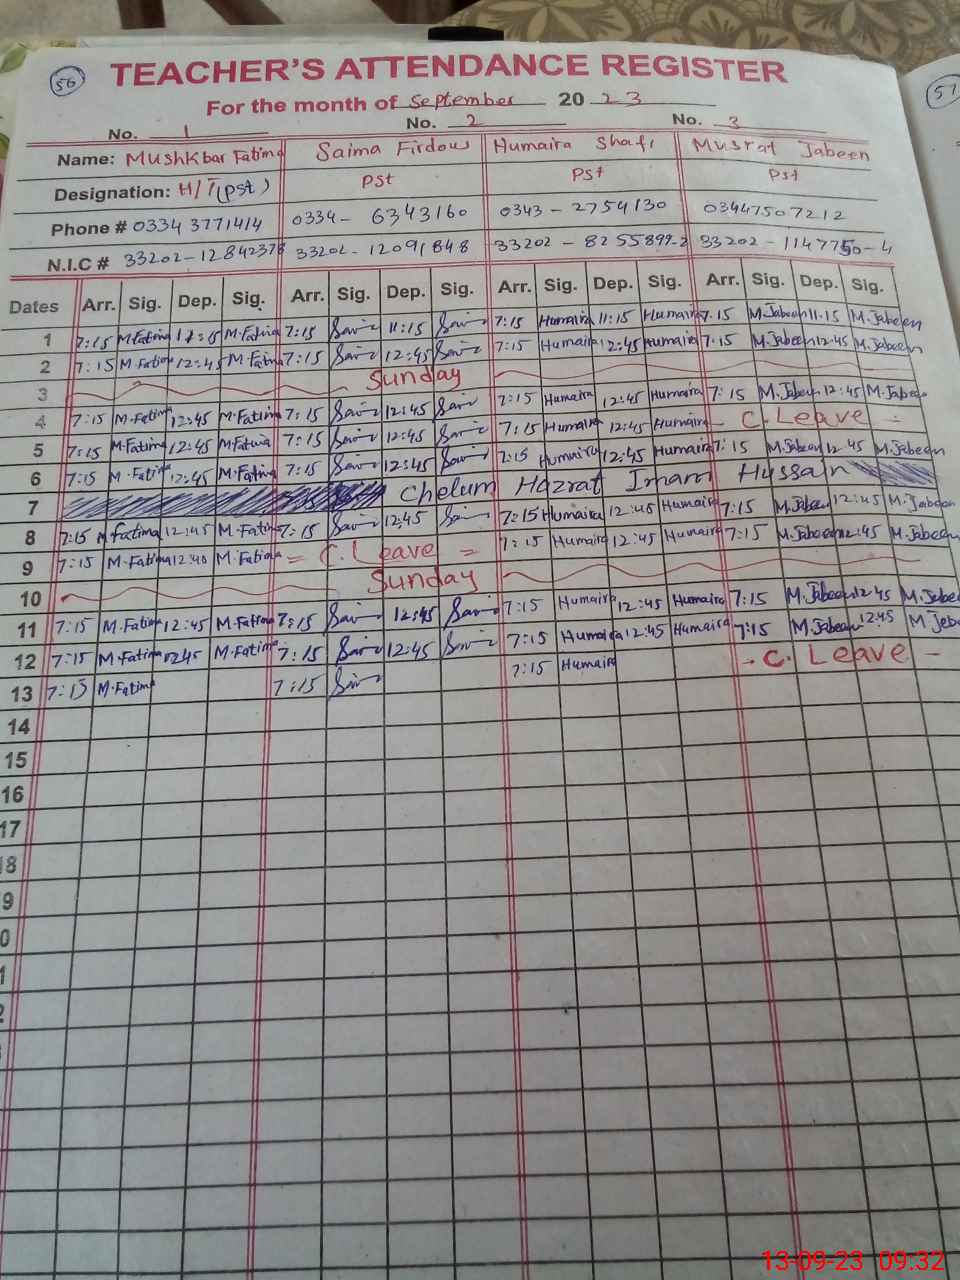 56
57
TEACHER'S ATTENDANCE REGISTER
For the month of September 20 23
No. 1 No. 2 No. 3
Name: Mushkbar Fatima Saima Firdous Humaira Shafi Musrat Jabeen
Designation: H/T (Pst) Pst Pst Pst
Phone # 0334 3771414 0334- 6343160 0343 - 2754130 03447507212
N.I.C # 33202-12842378 33202-12091848 33202 - 8255899-2 33202-1147750-4
Dates Arr. Sig. Dep. Sig. Arr. Sig. Dep. Sig. Arr. Sig. Dep. Sig. Arr. Sig. Dep. Sig.
1 7:15 M.Fatima 11:15 M.Fatima 7:15 11:15 7:15 Humaira 11:15 Humaira 7:15 M.Jabeen 11:15 M.Jabeen
2 7:15 M.Fatima 12:45 M.Fatima 7:15 12:45 7:15 Humaira 12:45 Humaira 7:15 M.Jabeen 12:45 M.Jabeen
3 Sunday
4 7:15 M.Fatima 12:45 M.Fatima 7:15 12:45 7:15 Humaira 12:45 Humaira 7:15 M.Jabeen 12:45 M.Jabeen
5 7:15 M.Fatima 12:45 M.Fatima 7:15 12:45 7:15 Humaira 12:45 Humaira - C.Leave -
6 7:15 M.Fatima 12:45 M.Fatima 7:15 12:45 7:15 Humaira 12:45 Humaira 7:15 M.Jabeen 12:45 M.Jabeen
7 Chelum Hazrat Imam Hussain
8 7:15 M.Fatima 12:45 M.Fatima 7:15 12:45 7:15 Humaira 12:45 Humaira 7:15 M.Jabeen 12:45 M.Jabeen
9 7:15 M.Fatima 12:40 M.Fatima = C.Leave = 7:15 Humaira 12:45 Humaira 7:15 M.Jabeen 12:45 M.Jabeen
10 Sunday
11 7:15 M.Fatima 12:45 M.Fatima 7:15 12:45 7:15 Humaira 12:45 Humaira 7:15 M.Jabeen 12:45 M.Jabeen
12 7:15 M.Fatima 1245 M.Fatima 7:15 12:45 7:15 Humaira 12:45 Humaira 7:15 M.Jabeen 12:45 M.Jabe
13 7:15 M.Fatima 7:15 7:15 Humaira - C. Leave -
14
15
16
17
18
9
0
1
2
13-09-23 09:32